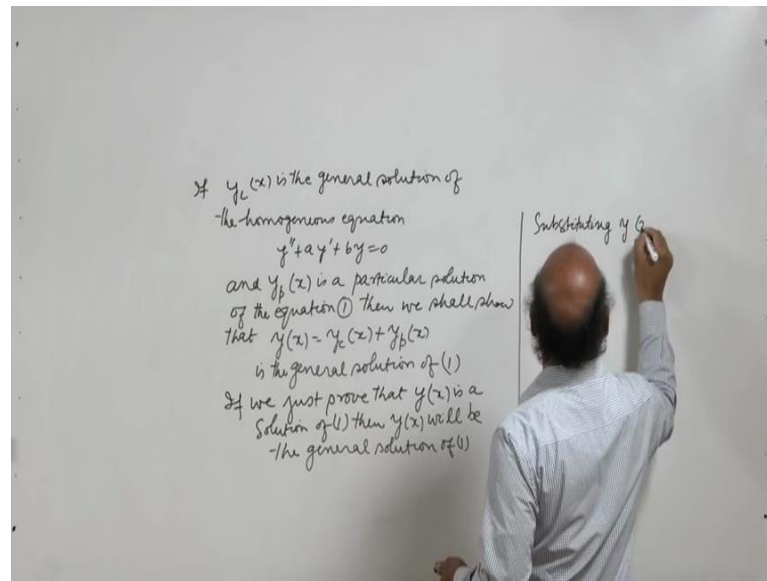 If y_c(x) is the general solution of
the homogeneous equation
y''+ay'+by=0
and y_p(x) is a particular solution
of the equation ① then we shall show
that y(x)=y_c(x)+y_p(x)
is the general solution of (1)
If we just prove that y(x) is a
Solution of (1) then y(x) will be
the general solution of (1)
Substituting y (